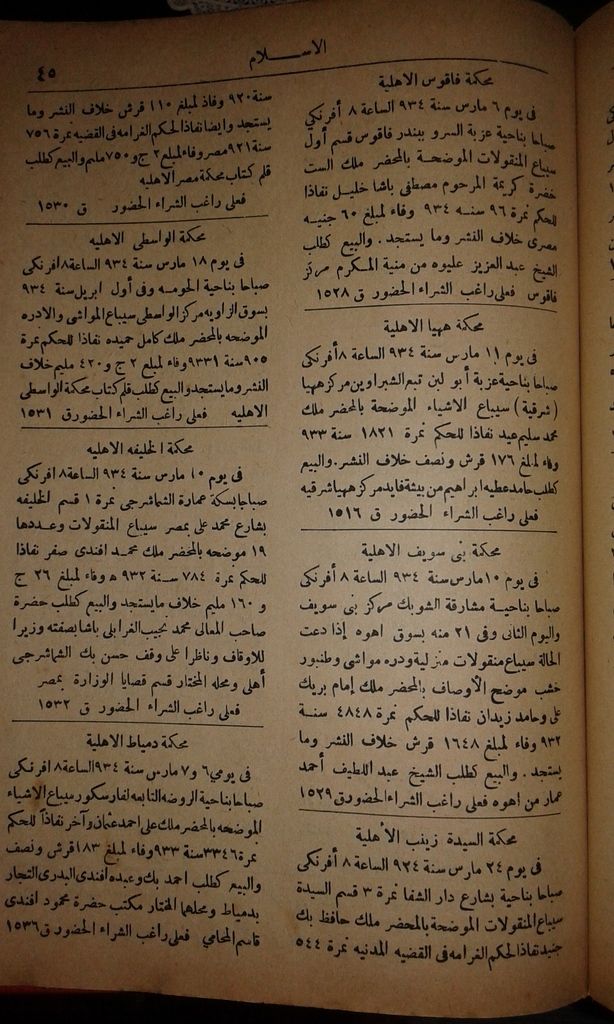 الاسلام
٤٥
محكمة فاقوس الاهلية
فى يوم ٦ مارس سنة ٩٣٤ الساعة ٨ أفرنكي
صباحا بناحية عزبة السرو ببندر فاقوس قسم أول
سيباع المنقولات الموضحة بالمحضر ملك الست
خضرة كريمة المرحوم مصطفى باشا خليل نفاذا
للحكم نمرة ٩٦ سنه ٩٣٤ وفاء لمبلغ ٦٠ جنيه
مصرى خلاف النشر وما يستجد . والبيع كطلب
الشيخ عبد العزيز عليوه من منية المكرم مركز
فاقوس فعلى راغب الشراء الحضور ق ١٥٢٨
محكمة ههيا الاهلية
فى يوم ١١ مارس سنة ٩٣٤ الساعة ٨ أفرنكى
صباحا بناحية عزبة أبو لبن تبع الشبراوين مركز ههيا
( شرقية ) سيباع الاشياء الموضحة بالمحضر ملك
محمد سليم عيد نفاذا للحكم نمرة ١٨٢١ سنة ٩٣٣
وفاء لمبلغ ١٧٦ قرش ونصف خلاف النشر. والبيع
كطلب حامد عطيه ابراهيم من بيشة فايد مركز ههيا شرقيه
فعلى راغب الشراء الحضور ق ١٥١٦
محكمة بنى سويف الاهلية
فى يوم ١٠ مارس سنة ٩٣٤ الساعة ٨ أفرنكى
صباحا بناحية مشارقة الشوبك مركز بنى سويف
واليوم الثانى وفى ٢١ منه بسوق اهوه إذا دعت
الحالة سيباع منقولات منزلية ودره مواشى وطنبور
خشب موضح الأوصاف بالمحضر ملك إمام بريك
على وحامد زيدان نفاذا للحكم نمرة ٤٨٤٨ سنة
٩٣٢ وفاء لمبلغ ١٦٤٨ قرش خلاف النشر وما
يستجد . والبيع كطلب الشيخ عبد اللطيف أحمد
عمار من اهوه فعلى راغب الشراء الحضور ق ١٥٢٩
محكمة السيدة زينب الأهلية
فى يوم ٢٤ مارس سنة ٩٢٤ الساعة ٨ أفرنكى
صباحا بناحية بشارع دار الشفا نمرة ٣ قسم السيدة
سيباع المنقولات الموضحة بالمحضر ملك حافظ بك
جنيد نفاذا لحكم الغرامه فى القضيه المدنيه نمرة ٥٤٤
سنة ٩٢٠ وفاذ لمبلغ ١١٠ قرش خلاف النشر وما
يستجد وايضا نفاذا لحكم الغرامه فى القضيه نمرة ٧٥٦
سنة ٩٢١ مصر وفاء لمبلغ ٢ ج و ٧٥٠ مليم والبيع كطلب
قلم كتاب محكمة مصر الاهليه
فعلى راغب الشراء الحضور ق ١٥٣٠
محكمة الواسطى الاهليه
فى يوم ١٨ مارس سنة ٩٣٤ الساعة ٨ افرنكى
صباحا بناحية الحومه وفى أول ابريل سنة ٩٣٤
بسوق الزاويه مركز الواسطى سيباع المواشى والادره
الموضحه بالمحضر ملك كامل حميده نفاذا للحكم نمرة
٩٠٥ سنة ٩٣٣١ وفاء لمبلغ ٢ ج و ٤٢٠ مليم خلاف
النشر وما يستجد والبيع كطلب قلم كتاب محكمة الواسطى
الاهليه فعلى راغب الشراء الحضور ق ١٥٣١
محكمة الخليفه الاهليه
فى يوم ١٠ مارس سنة ٩٣٤ الساعة ٨ افرنكى
صباحا بسكة عمارة الشماشرجى نمرة ١ قسم الخليفه
بشارع محمد على بمصر سيباع المنقولات وعددها
١٩ موضحه بالمحضر ملك محمد افندى صفر نفاذا
للحكم نمرة ٧٨٤ سنة ٩٣٢ ه وفاء لمبلغ ٢٦ ج
و ١٦٠ مليم خلاف ما يستجد والبيع كطلب حضرة
صاحب المعالى محمد نجيب الغرابلى باشا بصفته وزيرا
للاوقاف وناظرا على وقف حسن بك الشماشرجى
أهلى ومحله المختار قسم قضايا الوزارة بمصر
فعلى راغب الشراء الحضور ق ١٥٣٢
محكمة دمياط الاهلية
فى يومى ٦ و٧ مارس سنة ٩٣٤ الساعة ٨ افرنكى
صباحا بناحية الروضه التابعه لفارسكور سيباع الاشياء
الموضحه بالمحضر ملك على احمد عثمان وآخر نفاذا للحكم
نمرة ٣٣٤٦ سنة ٩٣٣ وفاء لمبلغ ١٨٣ قرش ونصف
والبيع كطلب احمد بك وعبده افندى البدرى التجار
بدمياط ومحلهما المختار مكتب حضرة محمود افندى
قاسم المحامي فعلى راغب الشراء الحضور ق ١٥٣٦